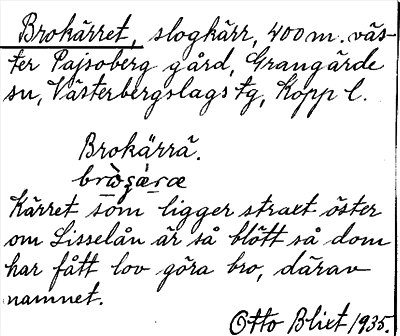 Brokärret, slogkärr, 400 m. väs-
ter Pajsoberg gård, Grangärde
sn, Västerbergslags tg, Kopp l.
Brokärrä.
Kärret som ligger straxt öster
om Lisselån är så blött så dom
har fått lov göra bro, därav
namnet.
Otto Blixt 1935.